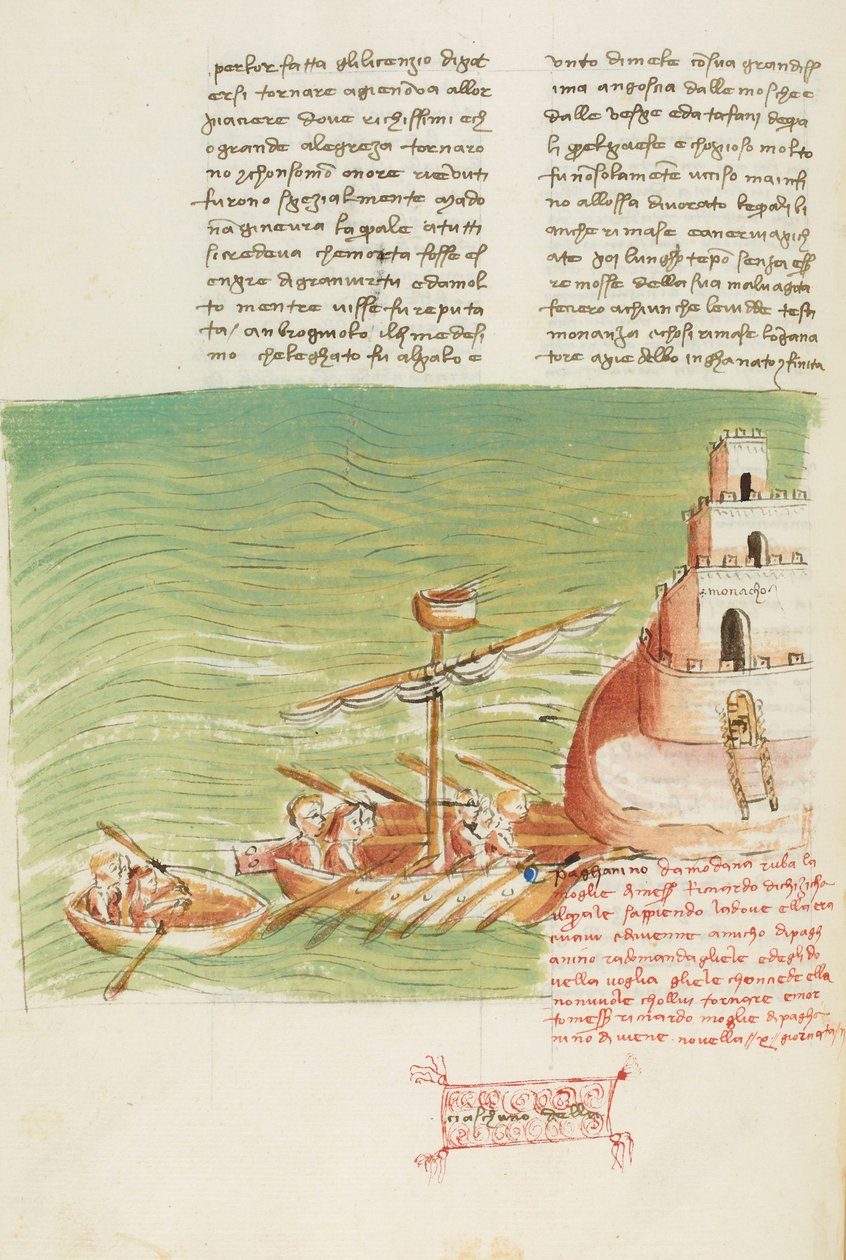 per lor fatta gli licenzio di pot
ersi tornare a gienova allor
piaciere dove richissimi e ch
o grande alegreza tornaro
no e chonsomo onore ricevuti
furono spezialmente mado
na gineura la quale a tutti
si credeva che morta fosse e s
enpre di gran virtu e da mol
to mentre visse fu reputa
ta / anbrogiuolo il di medesi
mo che leghato fu al palo e
vnto di mele cō sua grandiss
ima angoscia dalle mosche e
dalle vespe e da tafani de qua
li quel paese e chopioso molto
fu nō solamēte vcciso ma infi
no all ossa divorato le quali bi
anche rimase e a nervi apich
ate poi lungho tēpo senza ess
re mosse della sua malvagita
feciero a chiunche le vidde testi
monanza e chosi rimase lo īgana
tore a pie dello inghanato finita
monacho
paghanino da modana ruba la
moglie di mess Ricciardo di chizicha
il quale sappiendo la dove ella era
va e diviene amicho di pagh
anino radomandagliele ed egli do
vella voglia gliele choncede ella
non vuole chollui tornare e mor
to mess ricciardo moglie di pagha
nino diviene novella x giornata ij
ciaschuno della